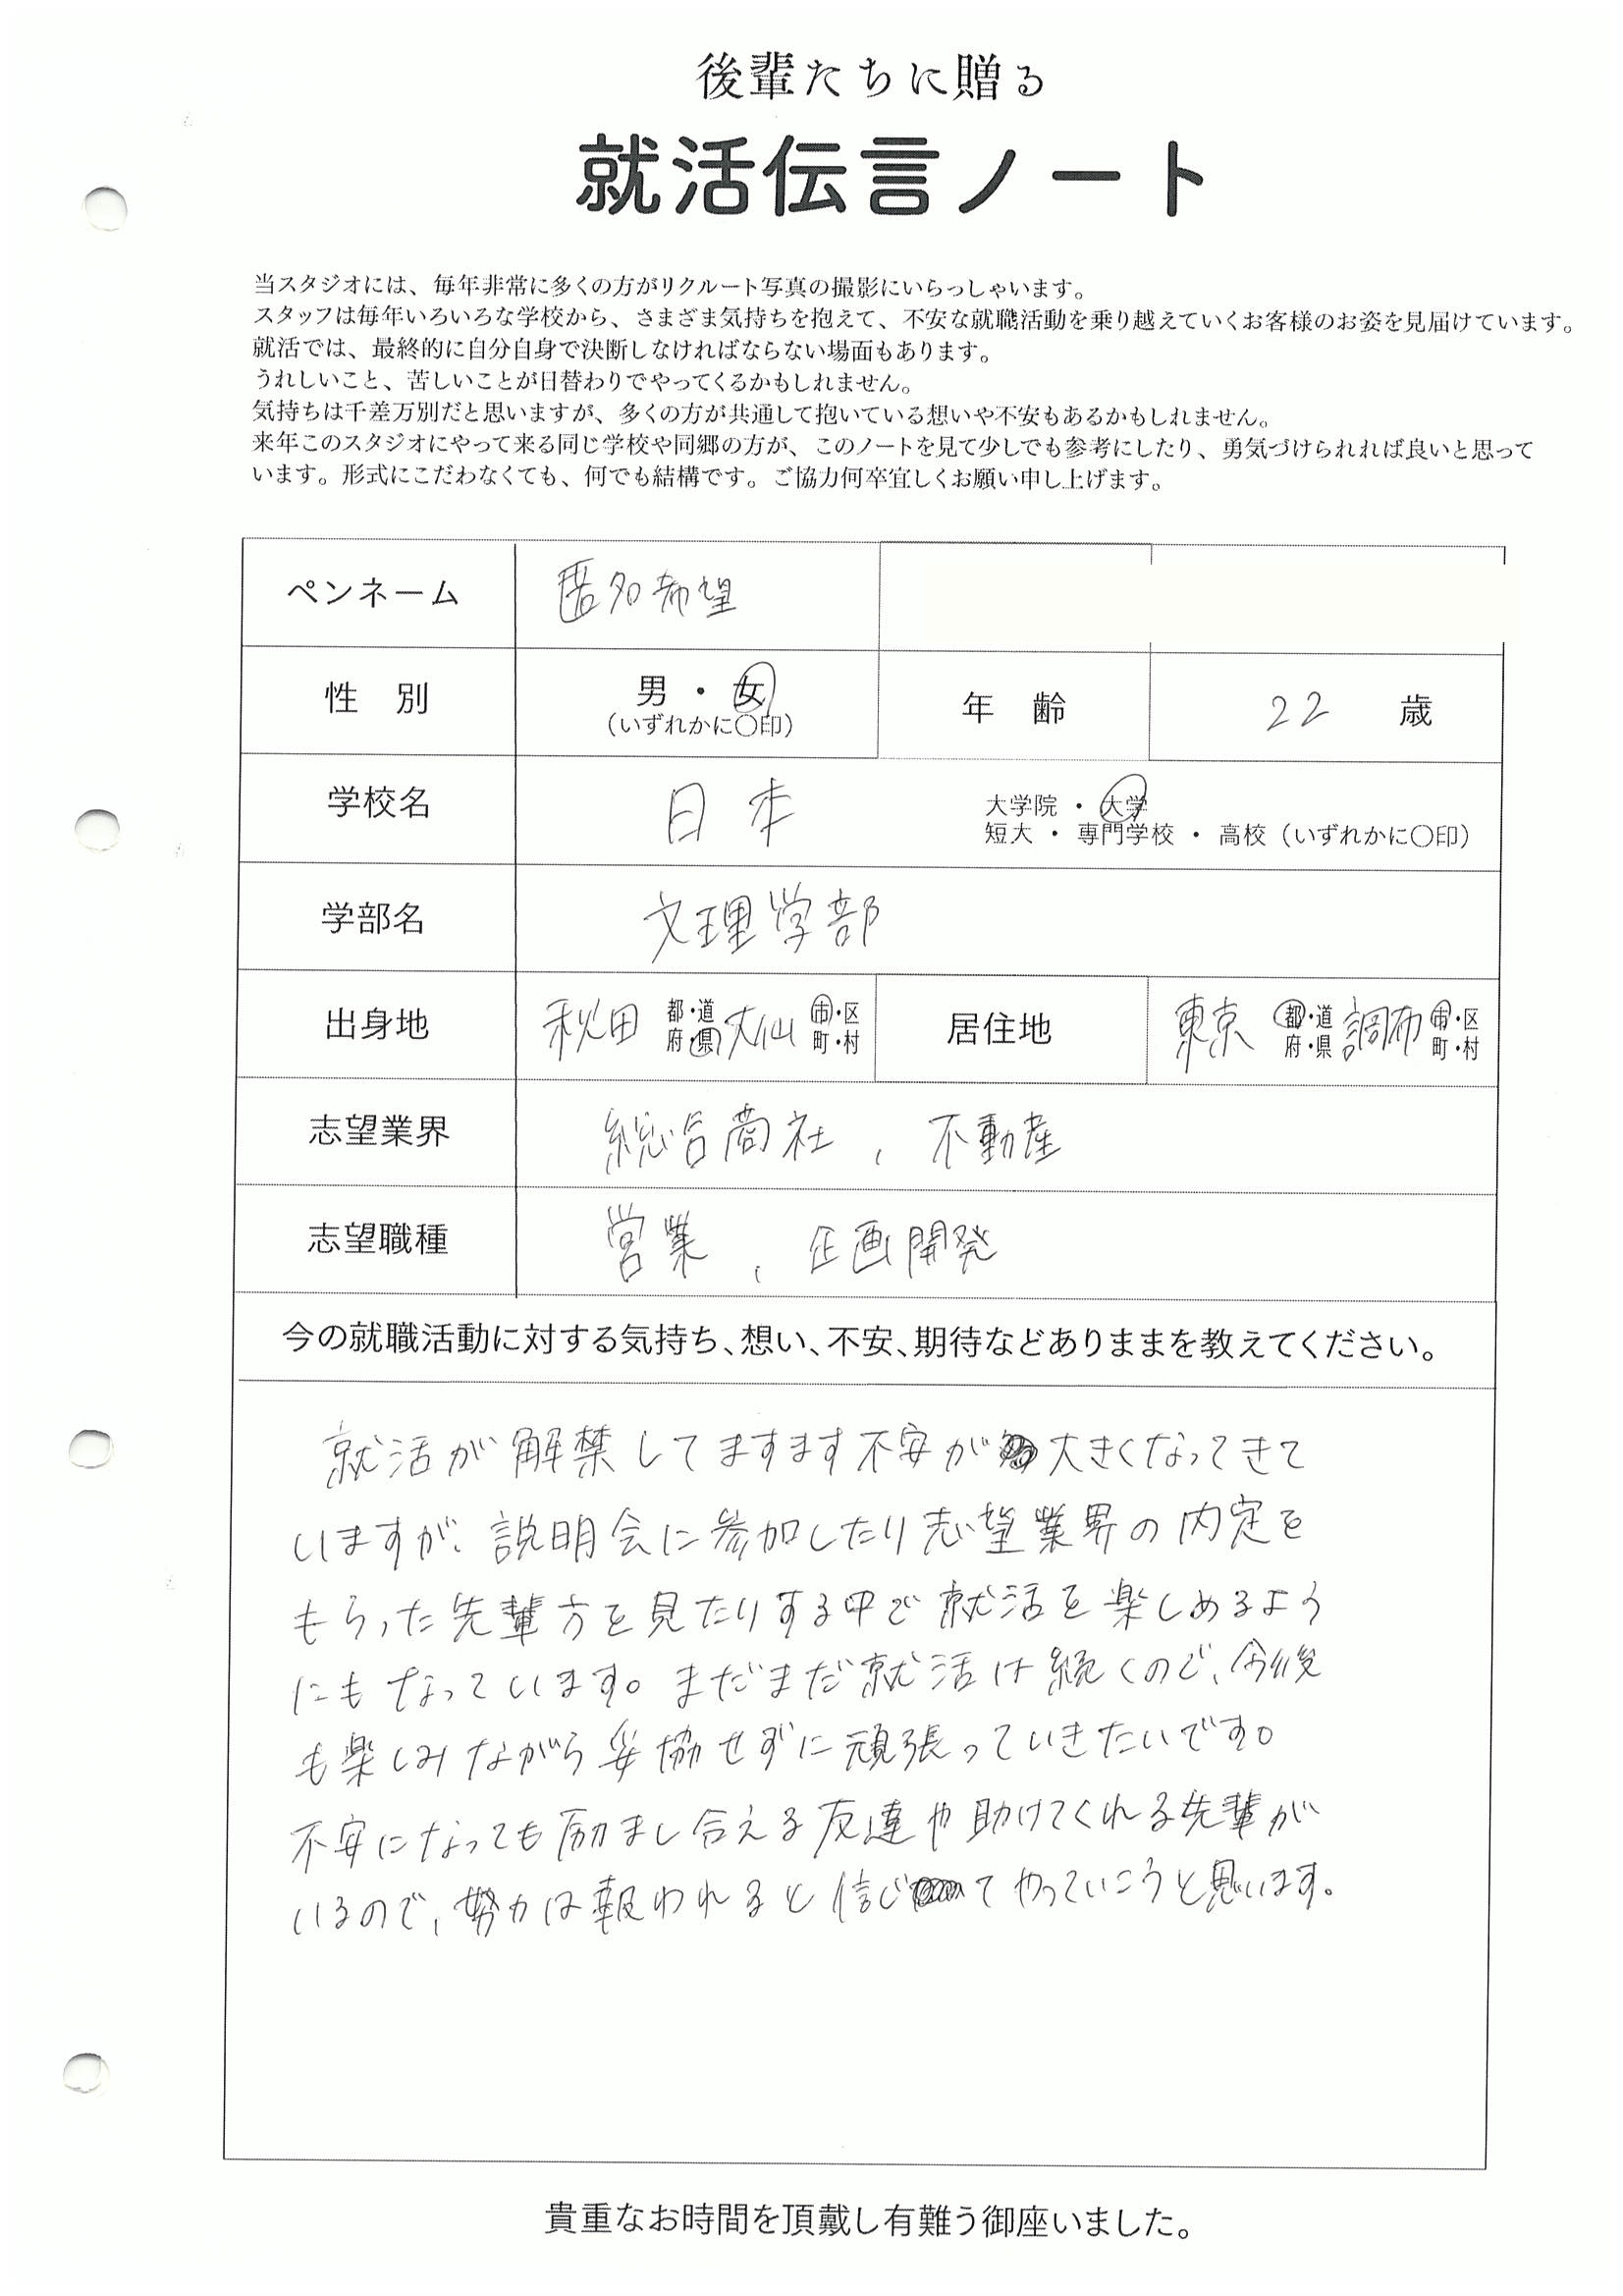 後輩たちに贈る
就活伝言ノート
当スタジオには、毎年非常に多くの方がリクルート写真の撮影にいらっしゃいます。
スタッフは毎年いろいろな学校から、さまざま気持ちを抱えて、不安な就職活動を乗り越えていくお客様のお姿を見届けています。
就活では、最終的に自分自身で決断しなければならない場面もあります。
うれしいこと、苦しいことが日替わりでやってくるかもしれません。
気持ちは千差万別だと思いますが、多くの方が共通して抱いている想いや不安もあるかもしれません。
来年このスタジオにやって来る同じ学校や同郷の方が、このノートを見て少しでも参考にしたり、勇気づけられれば良いと思って
います。形式にこだわなくても、何でも結構です。ご協力何卒宜しくお願い申し上げます。
ペンネーム 匿名希望
性 別 男・女 (いずれかに〇印) 年 齢 22 歳
学校名 日本 大学院・大学
短大・専門学校・高校(いずれかに〇印)
学部名 文理学部
出身地 秋田 都・道 府・県 大仙 市・区 町・村 居住地 東京 都・道 府・県 調布 市・区 町・村
志望業界 総合商社、不動産
志望職種 営業、企画開発
今の就職活動に対する気持ち、想い、不安、期待などありままを教えてください。
就活が解禁してますます不安が大きくなってきて
いますが、説明会に参加したり志望業界の内定を
もらった先輩方を見たりする中で就活を楽しめるよう
にもなっています。まだまだ就活は続くので、今後
も楽しみながら妥協せずに頑張っていきたいです。
不安になっても励まし合える友達や助けてくれる先輩が
いるので、努力は報われると信じてやっていこうと思います。
貴重なお時間を頂戴し有難う御座いました。